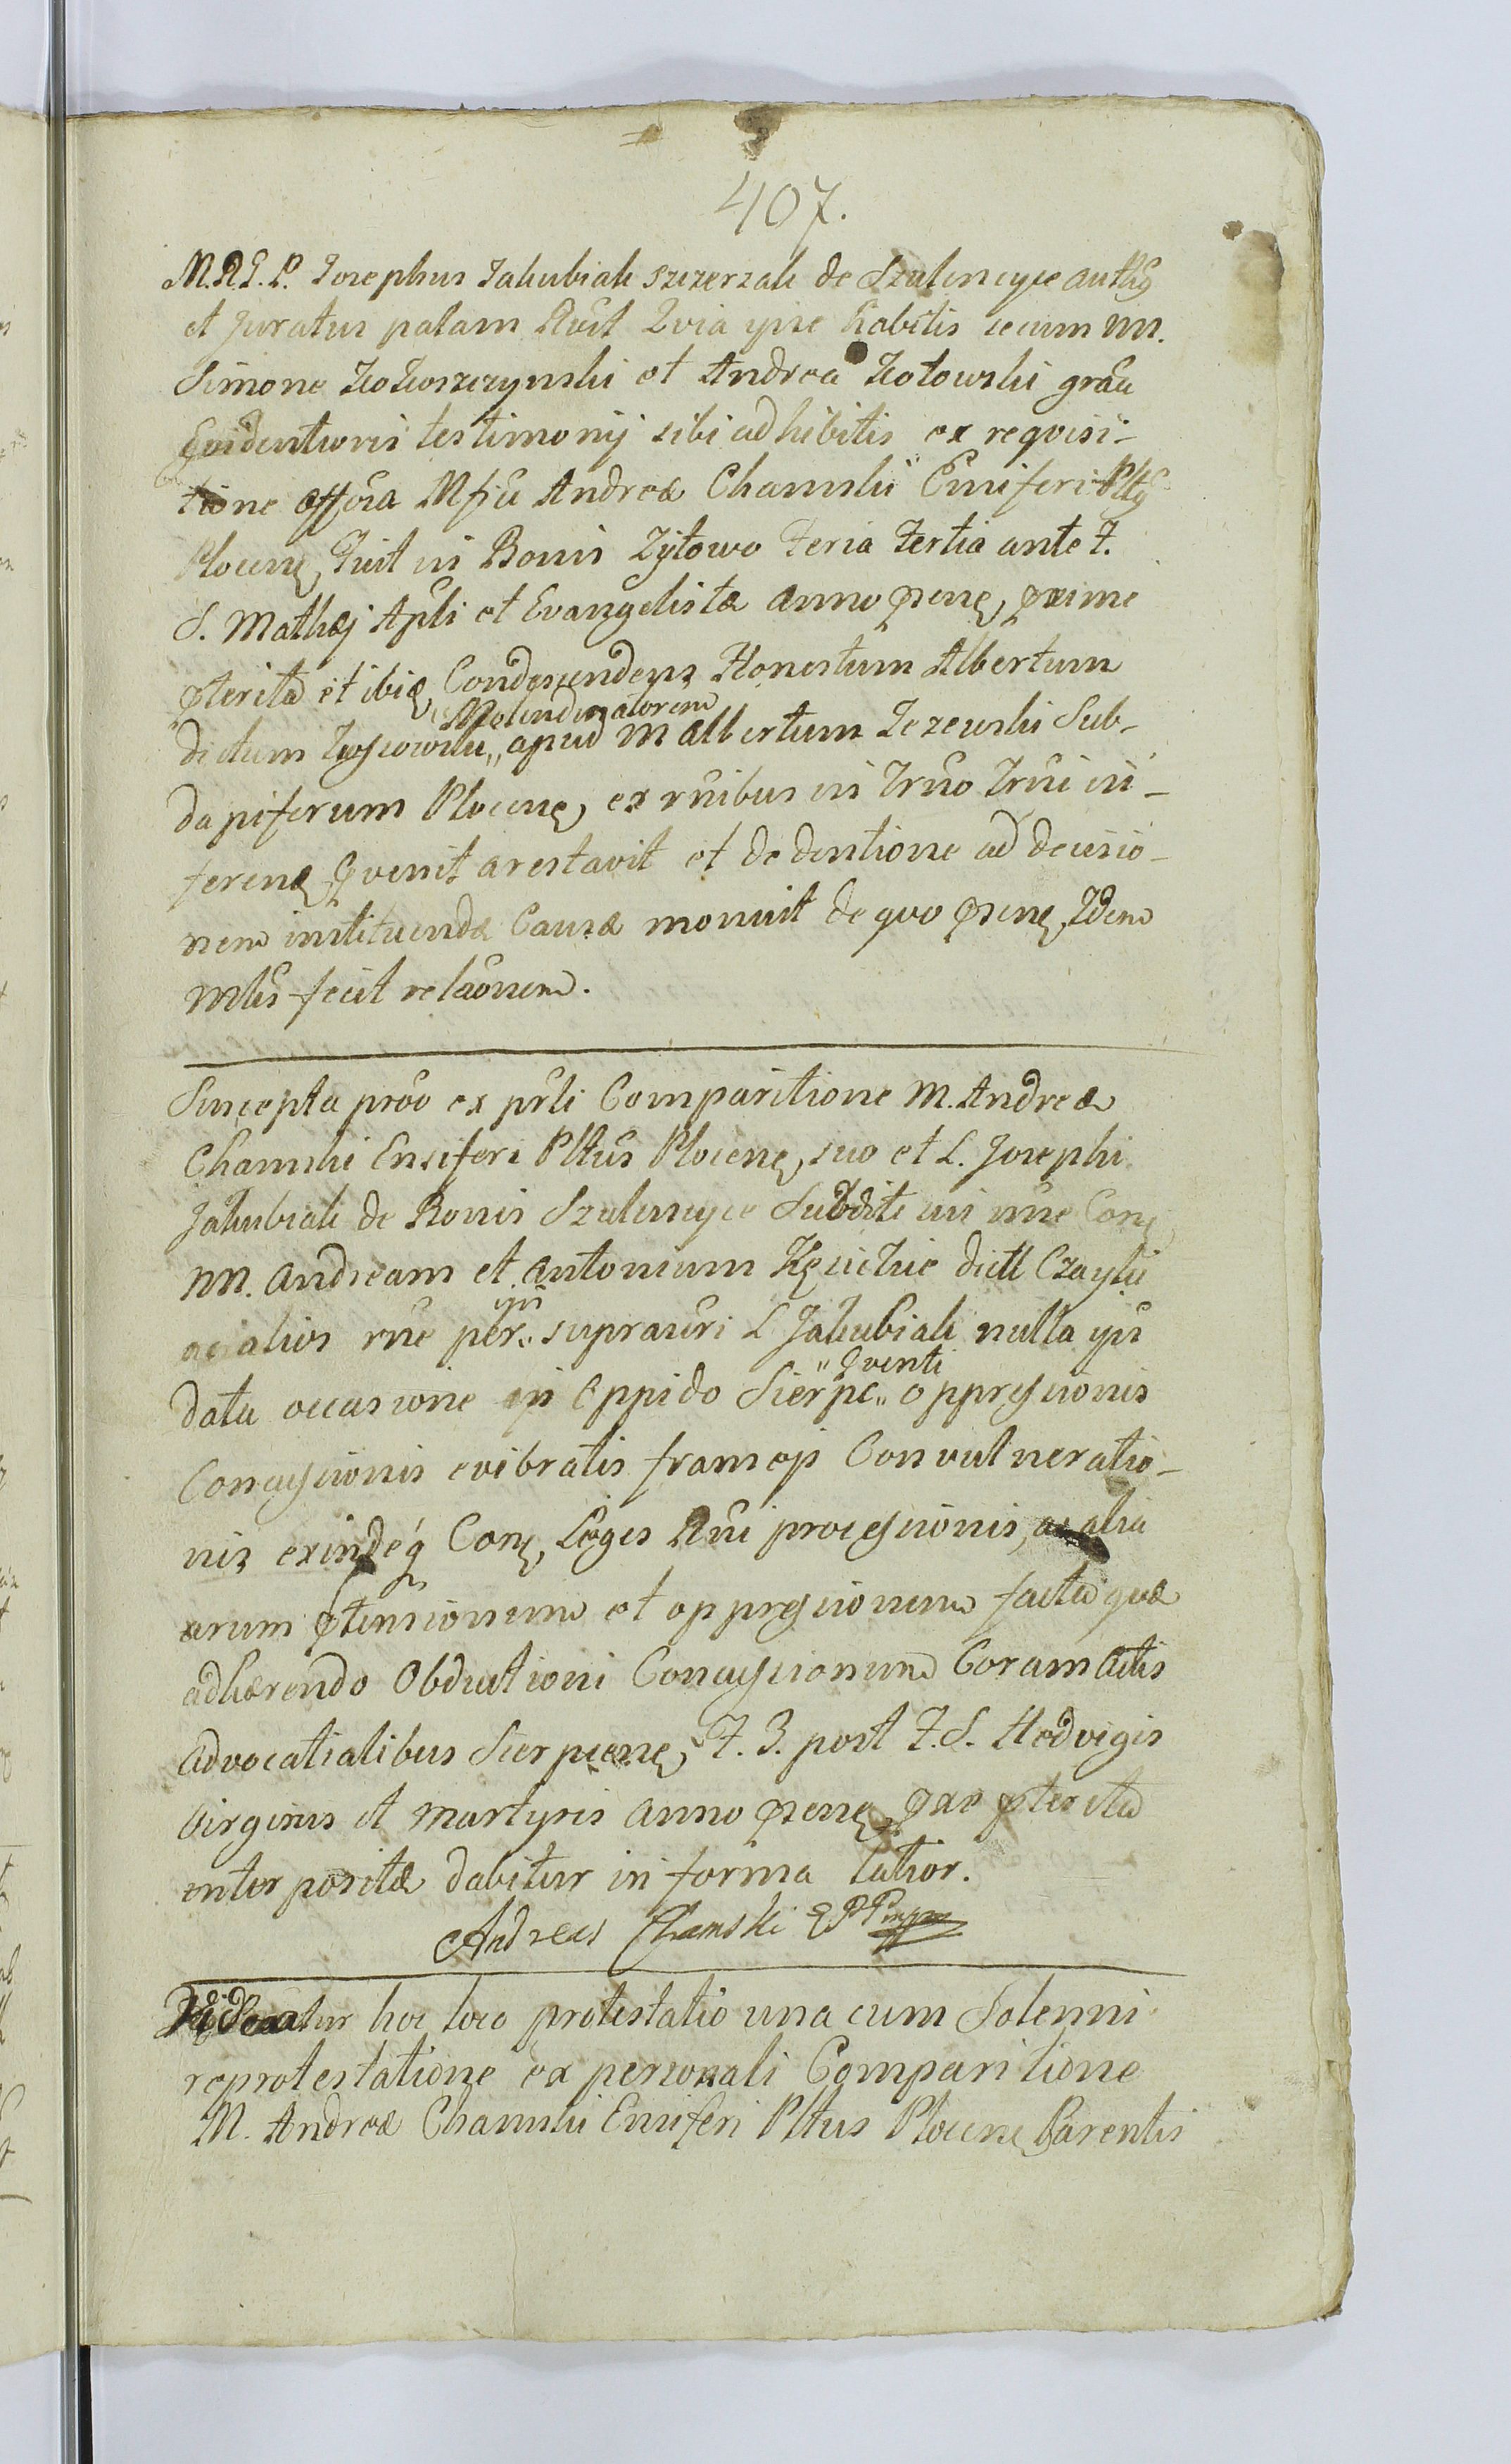 407.
M.R.G.P. Josephus Jakubiak szczerzak de Szulmyce auths
et Juratus palam Rūit Qvia ipse habitis secum MM.
Simone Koskoszczynski et Andrea Kotowski grāa
Evidentioris testimonij sibi adhibitis ex reqvisi-
tione Mfci Andreæ Chamski Ensiferi Pltūs
Plocenę fuit in Bonis Zytowo Feria Tertia ante F.
S. Mathæj Apli et Evangelistæ anno psenę pxime
pterita et ibiq Condescendens Honestum Albertum
Molendinatorem
dictum apud M Albertum Jezewski Sub-
dapiferum Plocenę ex rnibus in Trno Trni in-
ferenę arestavit et de dentione ad decisio-
nem instituendæ Causæ monuit de qvo psenę Idem
Mlis fecit relaōnem.
Suscepta proō ex prli Comparitione M. Andreæ
Chamski Ensiferi Pltūs Plocenę suo et L. Josephi
Jakubiak de Bonis Szulmyce Subditi sui nne Conę
MM. Andream et Antonium dictt Czayki
ipsis
ac alios rne per suprascri L Jakubiak nulla ipsis
data occasione in Oppido Sierpc oppressionis
Concussionis evibratis frameis Convulneratio-
nis exindeq Conę Leges Rni processionis, ac alia
arum ptensionum et oppressionum factæ qvæ
adhærendo Obductioni Concussionum Coram Actis
Advocatialibus Sierpcenę F. 3. post F. S. Hedvigis
Virginis et Martyris anno psenę pxe pterita
interpositæ dabitur in forma latior.
Andreas Chamski
Videatur hoc loco protestatio una cum Solenni
reprotestatione ex personali Comparitione
M. Andreæ Chamski Ensiferi Pltus Plocenę Parentis